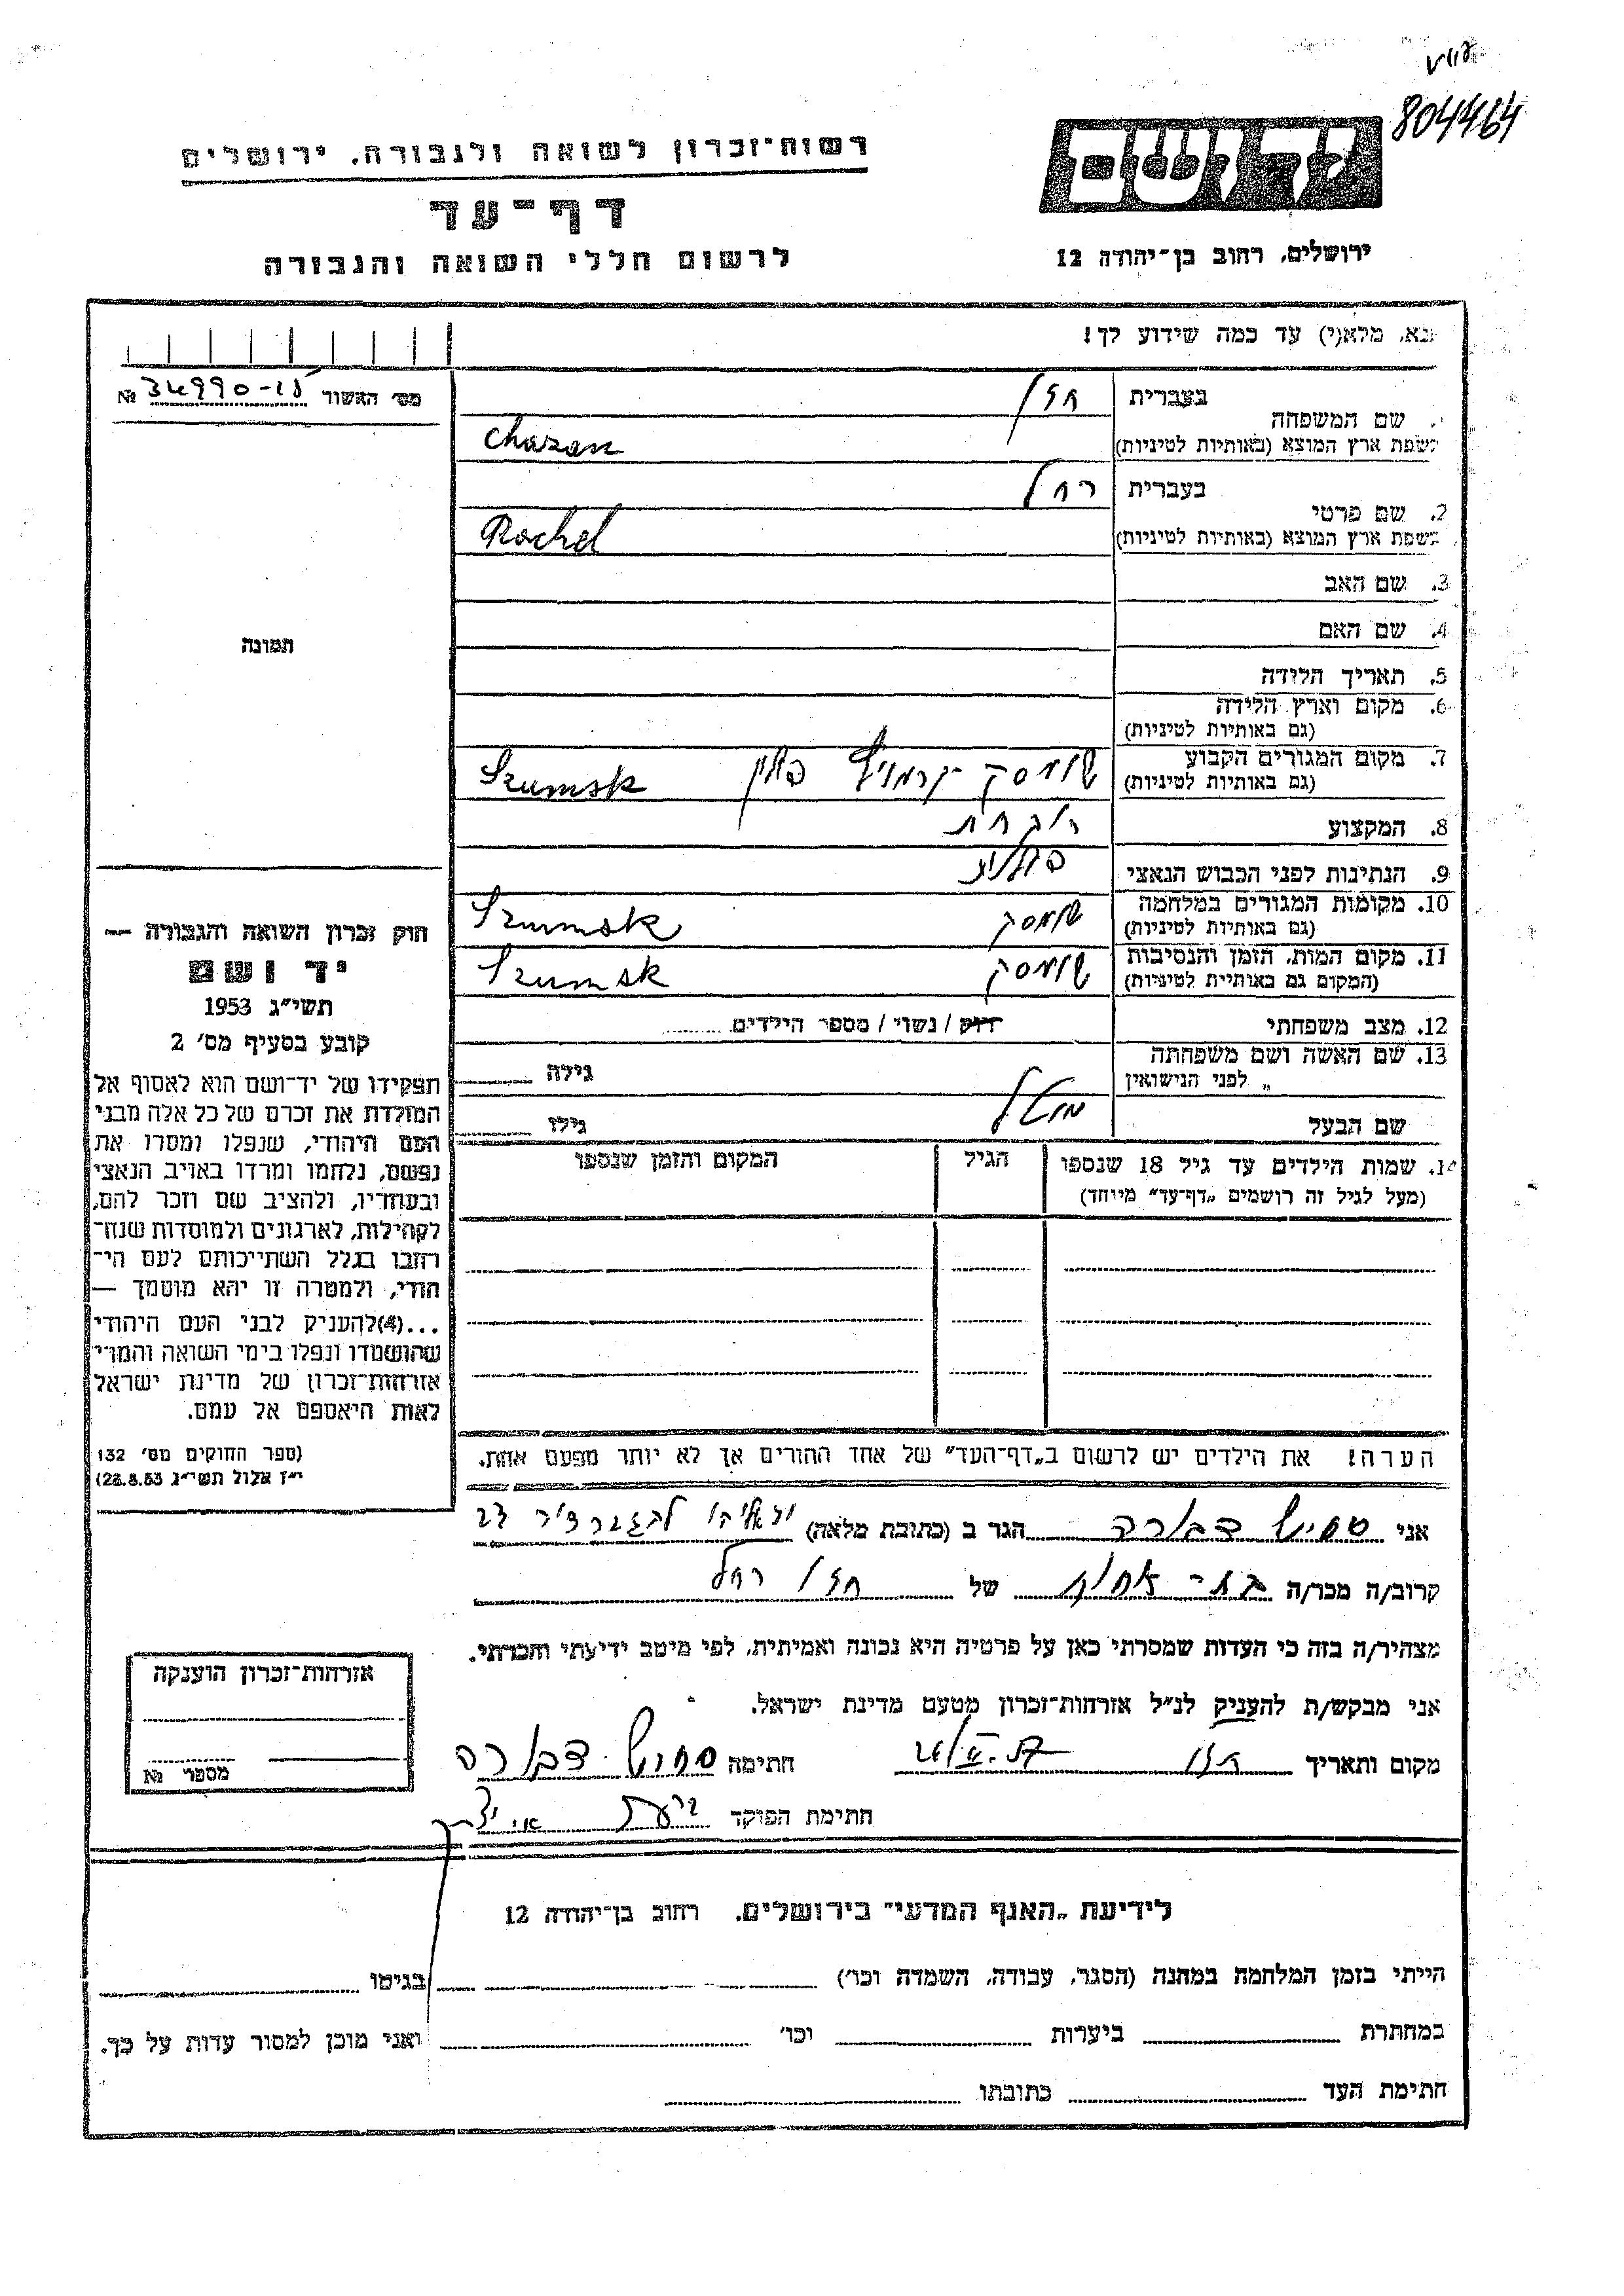 804464
יד ושם
רשות־זכרון לשואה ולגבורה, ירושלים
דף־עד
לרשום חללי השואה והגבורה
ירושלים, רחוב בן־יהודה 12
נא, מלא(י) עד כמה שידוע לך!
מס' האשור № 34990
שם המשפחה
בעברית חזן
בשפת ארץ המוצא (באותיות לטיניות) Chazan
2. שם פרטי
בעברית רחל
בשפת ארץ המוצא (באותיות לטיניות) Rachel
3. שם האב
4. שם האם
תמונה
5. תאריך הלידה
6. מקום וארץ הלידה
(גם באותיות לטיניות)
7. מקום המגורים הקבוע שומסק פולין Szumsk
(גם באותיות לטיניות)
8. המקצוע
9. הנתינות לפני הכבוש הנאצי פולנית
10. מקומות המגורים במלחמה שומסק Szumsk
(גם באותיות לטיניות)
11. מקום המות, הזמן והנסיבות שומסק Szumsk
(המקום גם באותיות לטיניות)
12. מצב משפחתי רווק / נשוי / מספר הילדים
13. שם האשה ושם משפחתה
„ לפני הנישואין גילה
שם הבעל גילו
14. שמות הילדים עד גיל 18 שנספו הגיל המקום והזמן שנספו
(מעל לגיל זה רושמים „דף־עד” מיוחד)
חוק זכרון השואה והגבורה —
יד ושם
תשי״ג 1953
קובע בסעיף מס' 2
תפקידו של יד־ושם הוא לאסוף אל
המולדת את זכרם של כל אלה מבני
העם היהודי, שנפלו ומסרו את
נפשם, נלחמו ומרדו באויב הנאצי
ובעוזריו, ולהציב שם וזכר להם,
לקהילות, לארגונים ולמוסדות שנח־
רבו בגלל השתייכותם לעם הי־
הודי, ולמטרה זו יהא מוסמך —
...(4)להעניק לבני העם היהודי
שהושמדו ונפלו בימי השואה והמרי
אזרחות־זכרון של מדינת ישראל
לאות היאספם אל עמם.
(ספר החוקים מס' 132
י״ז אלול תשי״ג 28.8.53)
הערה! את הילדים יש לרשום ב„דף־העד” של אחד ההורים אך לא יותר מפעם אחת.
אני דבורה הגר ב (כתובת מלאה)
קרוב/ה מכר/ה של חזן רחל
מצהיר/ה בזה כי העדות שמסרתי כאן על פרטיה היא נכונה ואמיתית, לפי מיטב ידיעתי והכרתי.
אני מבקש/ת להעניק לנ״ל אזרחות־זכרון מטעם מדינת ישראל.
מקום ותאריך חתימה דבורה
חתימת הפוקד
אזרחות־זכרון הוענקה
מספר №
לידיעת „האגף המדעי” בירושלים, רחוב בן־יהודה 12
הייתי בזמן המלחמה במחנה (הסגר, עבודה, השמדה וכו') בגיטו
במחתרת ביערות וכו' ואני מוכן למסור עדות על כך.
חתימת העד כתובתו